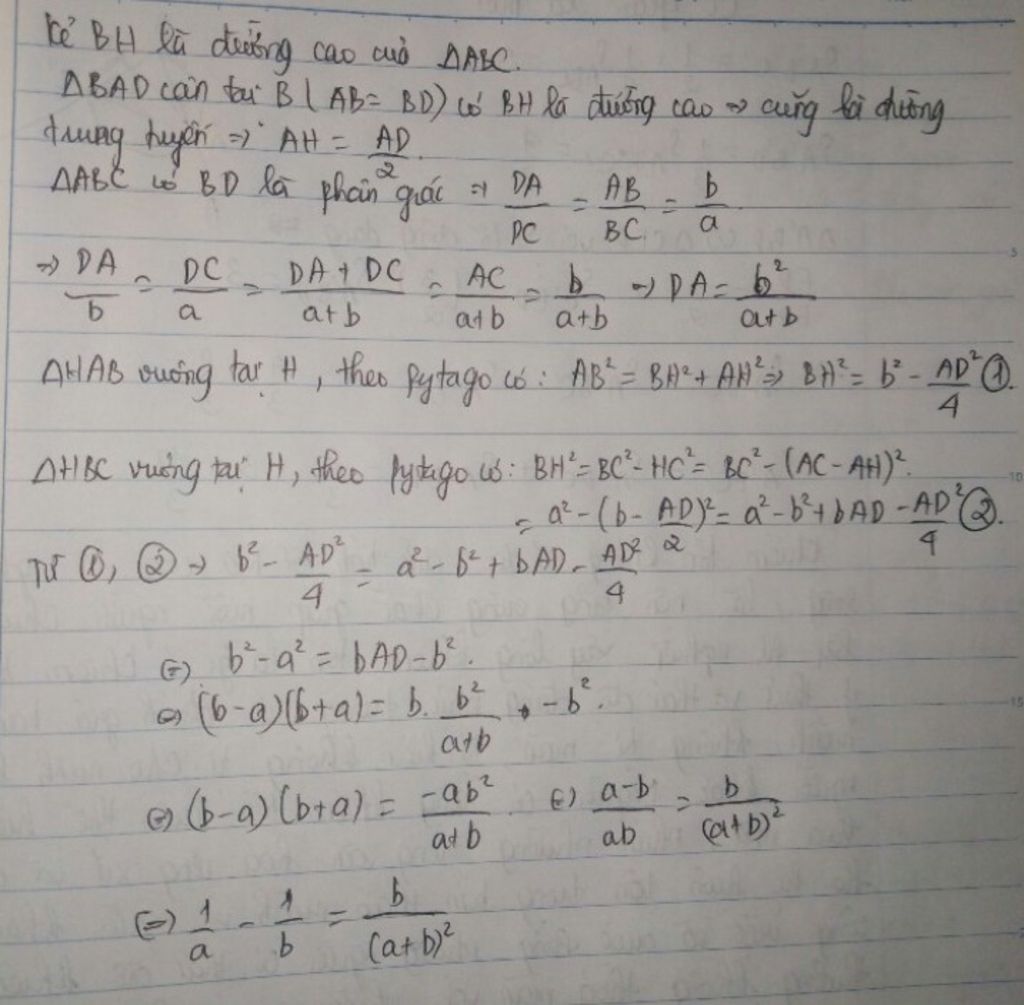 Kẻ BH là đường cao của ΔABC.
ΔBAD cân tại B (AB = BD) có BH là đường cao => cũng là đường
trung tuyến => AH = AD/2.
ΔABC có BD là phân giác => DA/DC = AB/BC = b/a.
=> DA/b = DC/a = (DA + DC)/(a+b) = AC/(a+b) = b/(a+b) => DA = b²/(a+b)
ΔHAB vuông tại H, theo Pytago có: AB² = BH² + AH² => BH² = b² - AD²/4 ①.
ΔHBC vuông tại H, theo Pytago có: BH² = BC² - HC² = BC² - (AC - AH)².
= a² - (b - AD/2)² = a² - b² + bAD - AD²/4 ②.
Từ ①, ② => b² - AD²/4 = a² - b² + bAD - AD²/4
<=> b² - a² = bAD - b².
<=> (b-a)(b+a) = b. b²/(a+b) - b².
<=> (b-a)(b+a) = -ab²/(a+b) <=> (a-b)/ab = b/(a+b)²
<=> 1/a - 1/b = b/(a+b)²